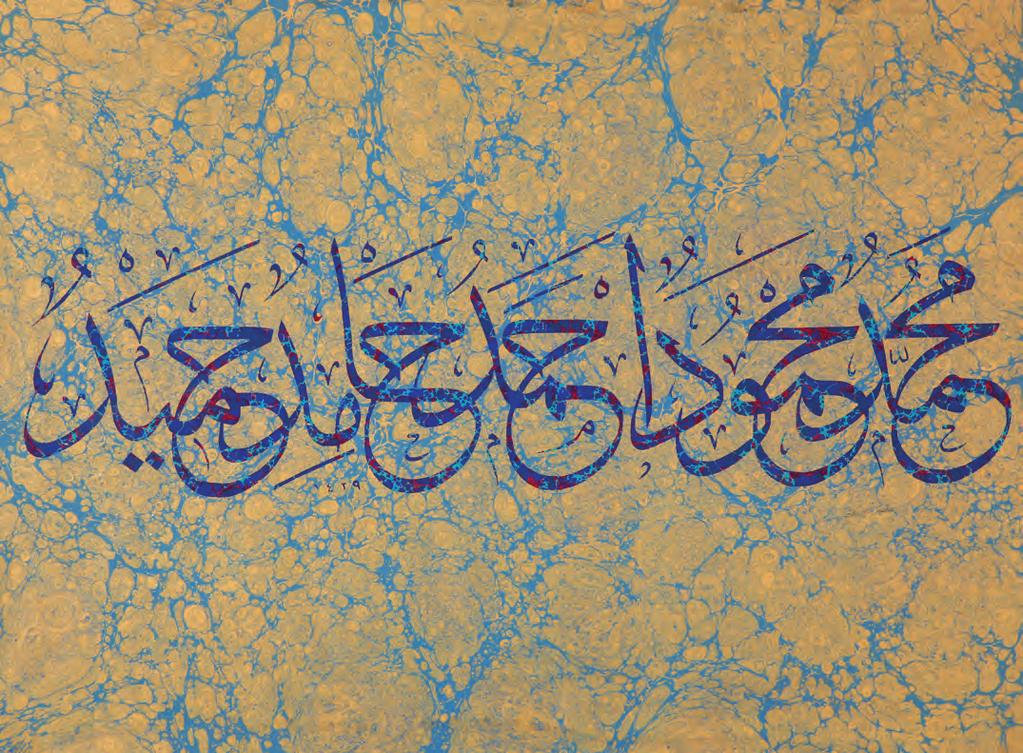 مُحَمَّدٌ مَحْمُودٌ أَحْمَدُ حَامِدٌ حَمِيدٌ